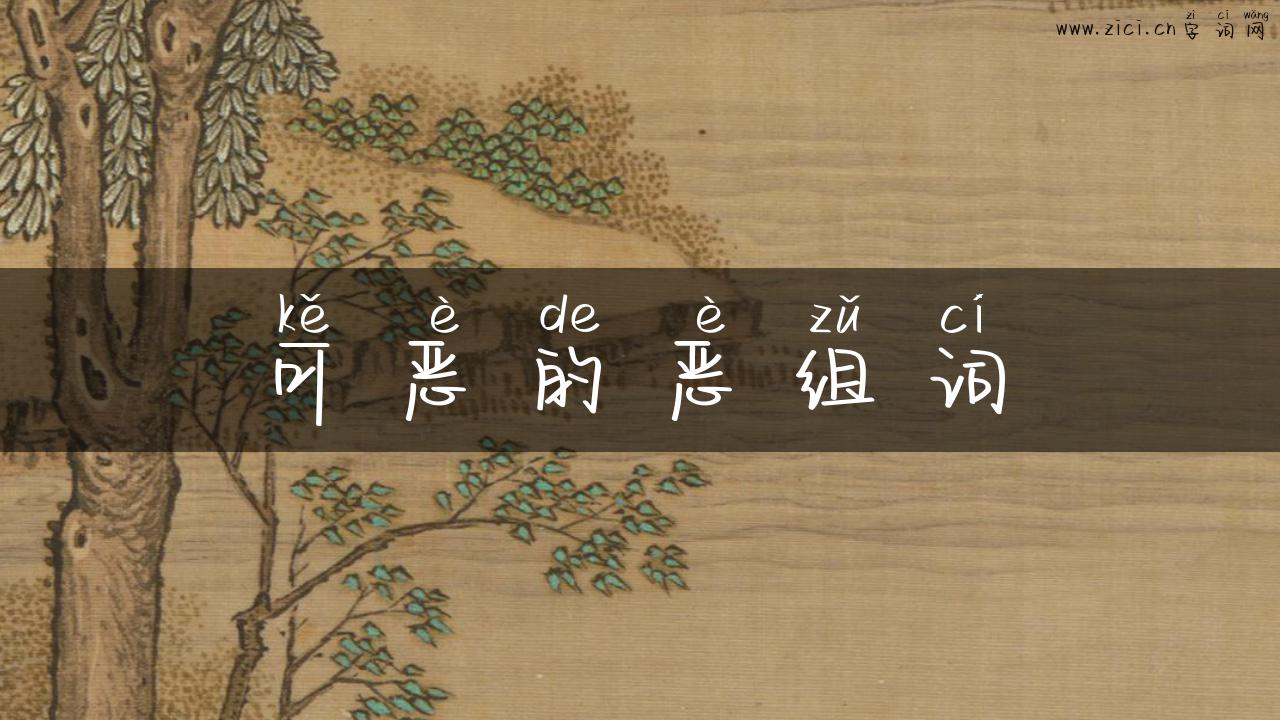 zì cí wǎng
www.zici.cn 字词网
kě è de è zǔ cí
可恶的恶组词